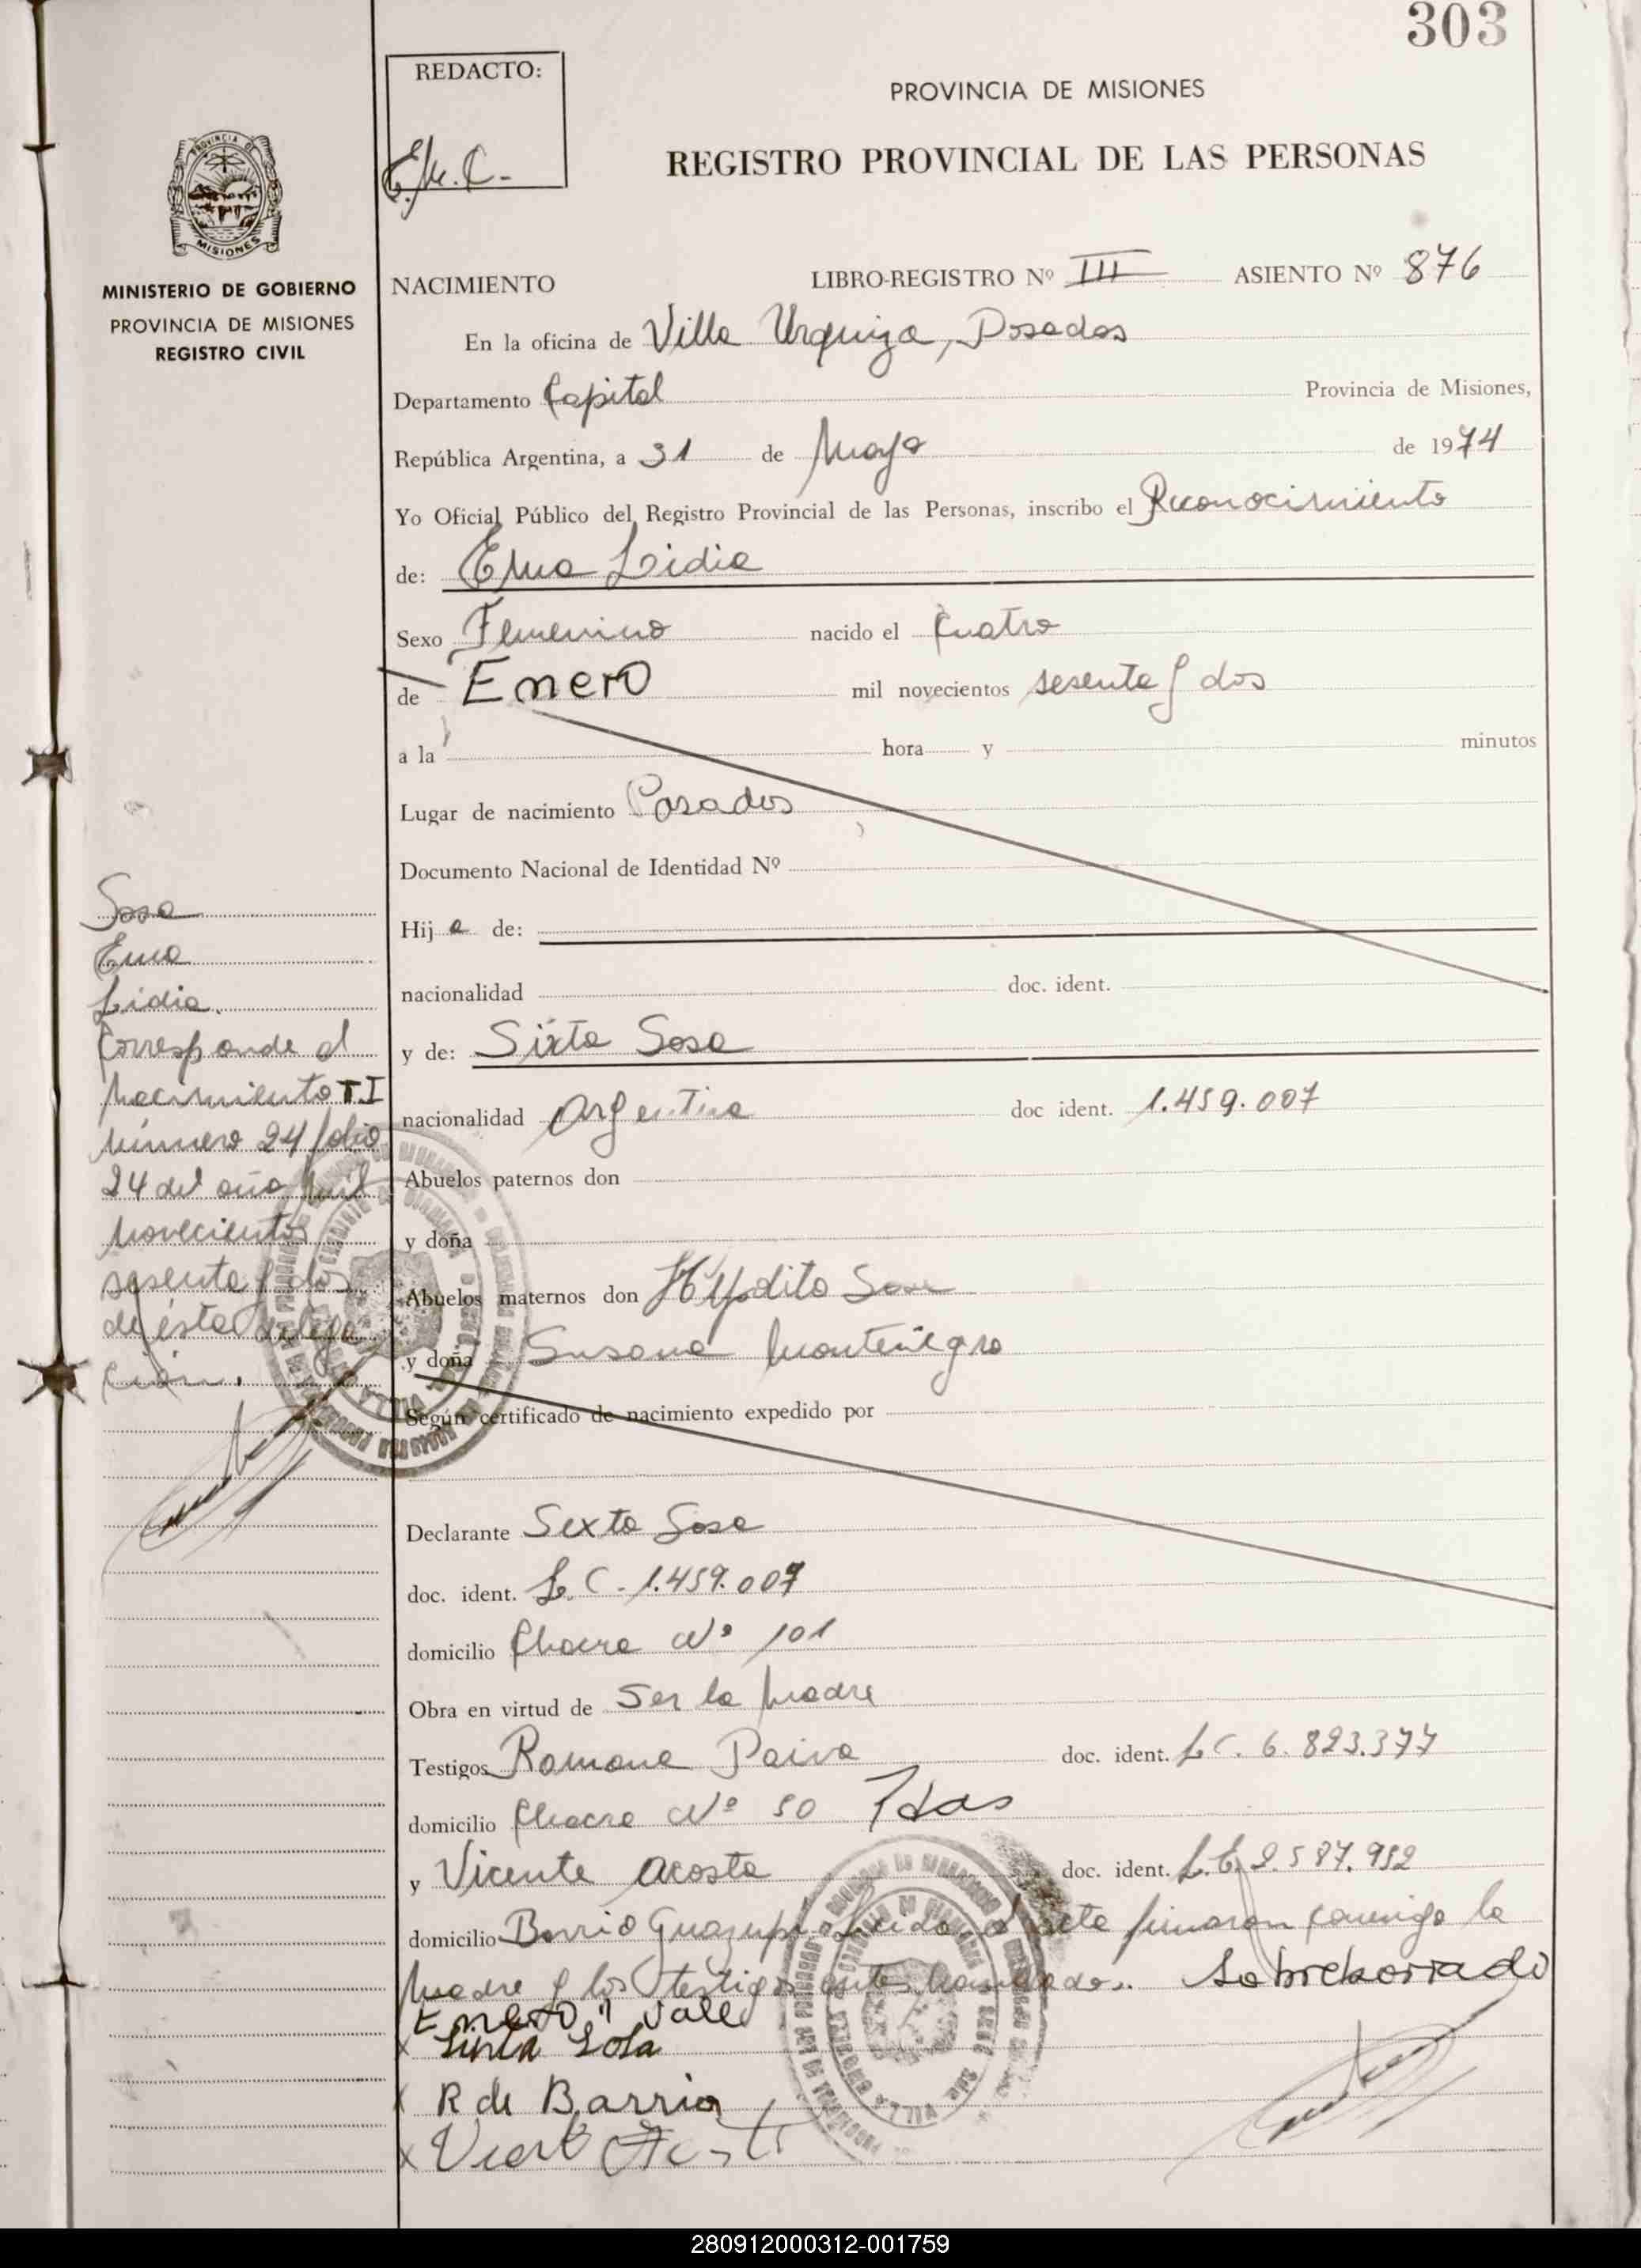 303
REDACTO:
E.M.C.
PROVINCIA DE MISIONES
REGISTRO PROVINCIAL DE LAS PERSONAS
PROVINCIA DE
MISIONES
MINISTERIO DE GOBIERNO
PROVINCIA DE MISIONES
REGISTRO CIVIL
NACIMIENTO LIBRO-REGISTRO Nº III ASIENTO Nº 876
En la oficina de Villa Urquiza, Posadas
Departamento Capital Provincia de Misiones,
República Argentina, a 31 de Mayo de 1974
Yo Oficial Público del Registro Provincial de las Personas, inscribo el Reconocimiento
de: Ema Lidia
Sexo Femenino nacido el Cuatro
de Enero mil novecientos sesenta y dos
a la hora y minutos
Lugar de nacimiento Posadas
Documento Nacional de Identidad Nº
Hij a de:
nacionalidad doc. ident.
y de: Sixta Sosa
nacionalidad Argentina doc ident. 1.459.007
Abuelos paternos don
y doña
Abuelos maternos don Hipólito Sosa
y doña Susana Montenegro
Según certificado de nacimiento expedido por
Declarante Sixta Sosa
doc. ident. L.C. 1.459.007
domicilio Chacra Nº 101
Obra en virtud de Ser la Madre
Testigos Ramona Paiva doc. ident. L.C. 6.823.377
domicilio Chacra Nº 50 Pdas
y Vicente Acosta doc. ident. L.E. 2.587.982
domicilio Barrio Guazupi. Leida el acta firmaron conmigo la
Madre y los testigos antes nombrados. Sobreborrado
Enero " Vale
x Sixta Sosa
x R de Barrio
x Vicente Acosta
Sosa
Ema
Lidia.
Corresponde al
Nacimiento T I
Número 24 folio
24 del año mil
Novecientos
sesenta y dos
de ésta Delega
ción.
280912000312-001759